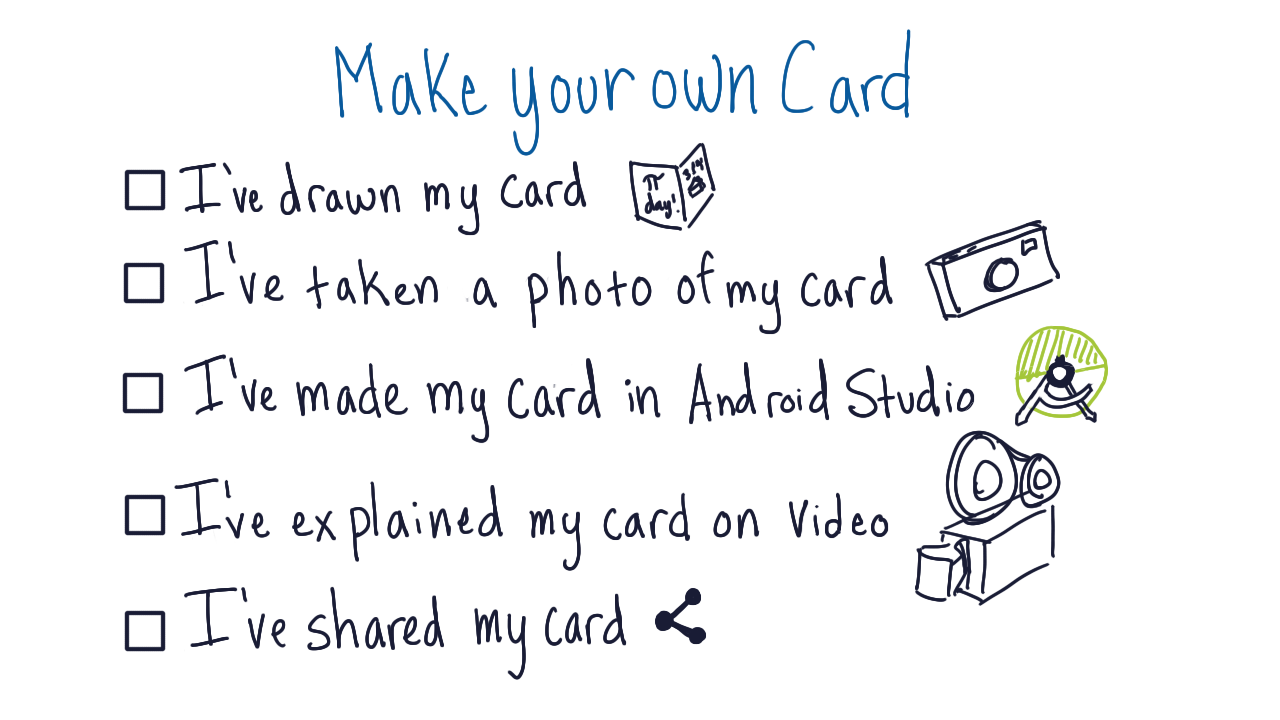 Make your own Card
I've drawn my card
π day!
3.14
I've taken a photo of my card
I've made my card in Android Studio
I've explained my card on Video
I've shared my card